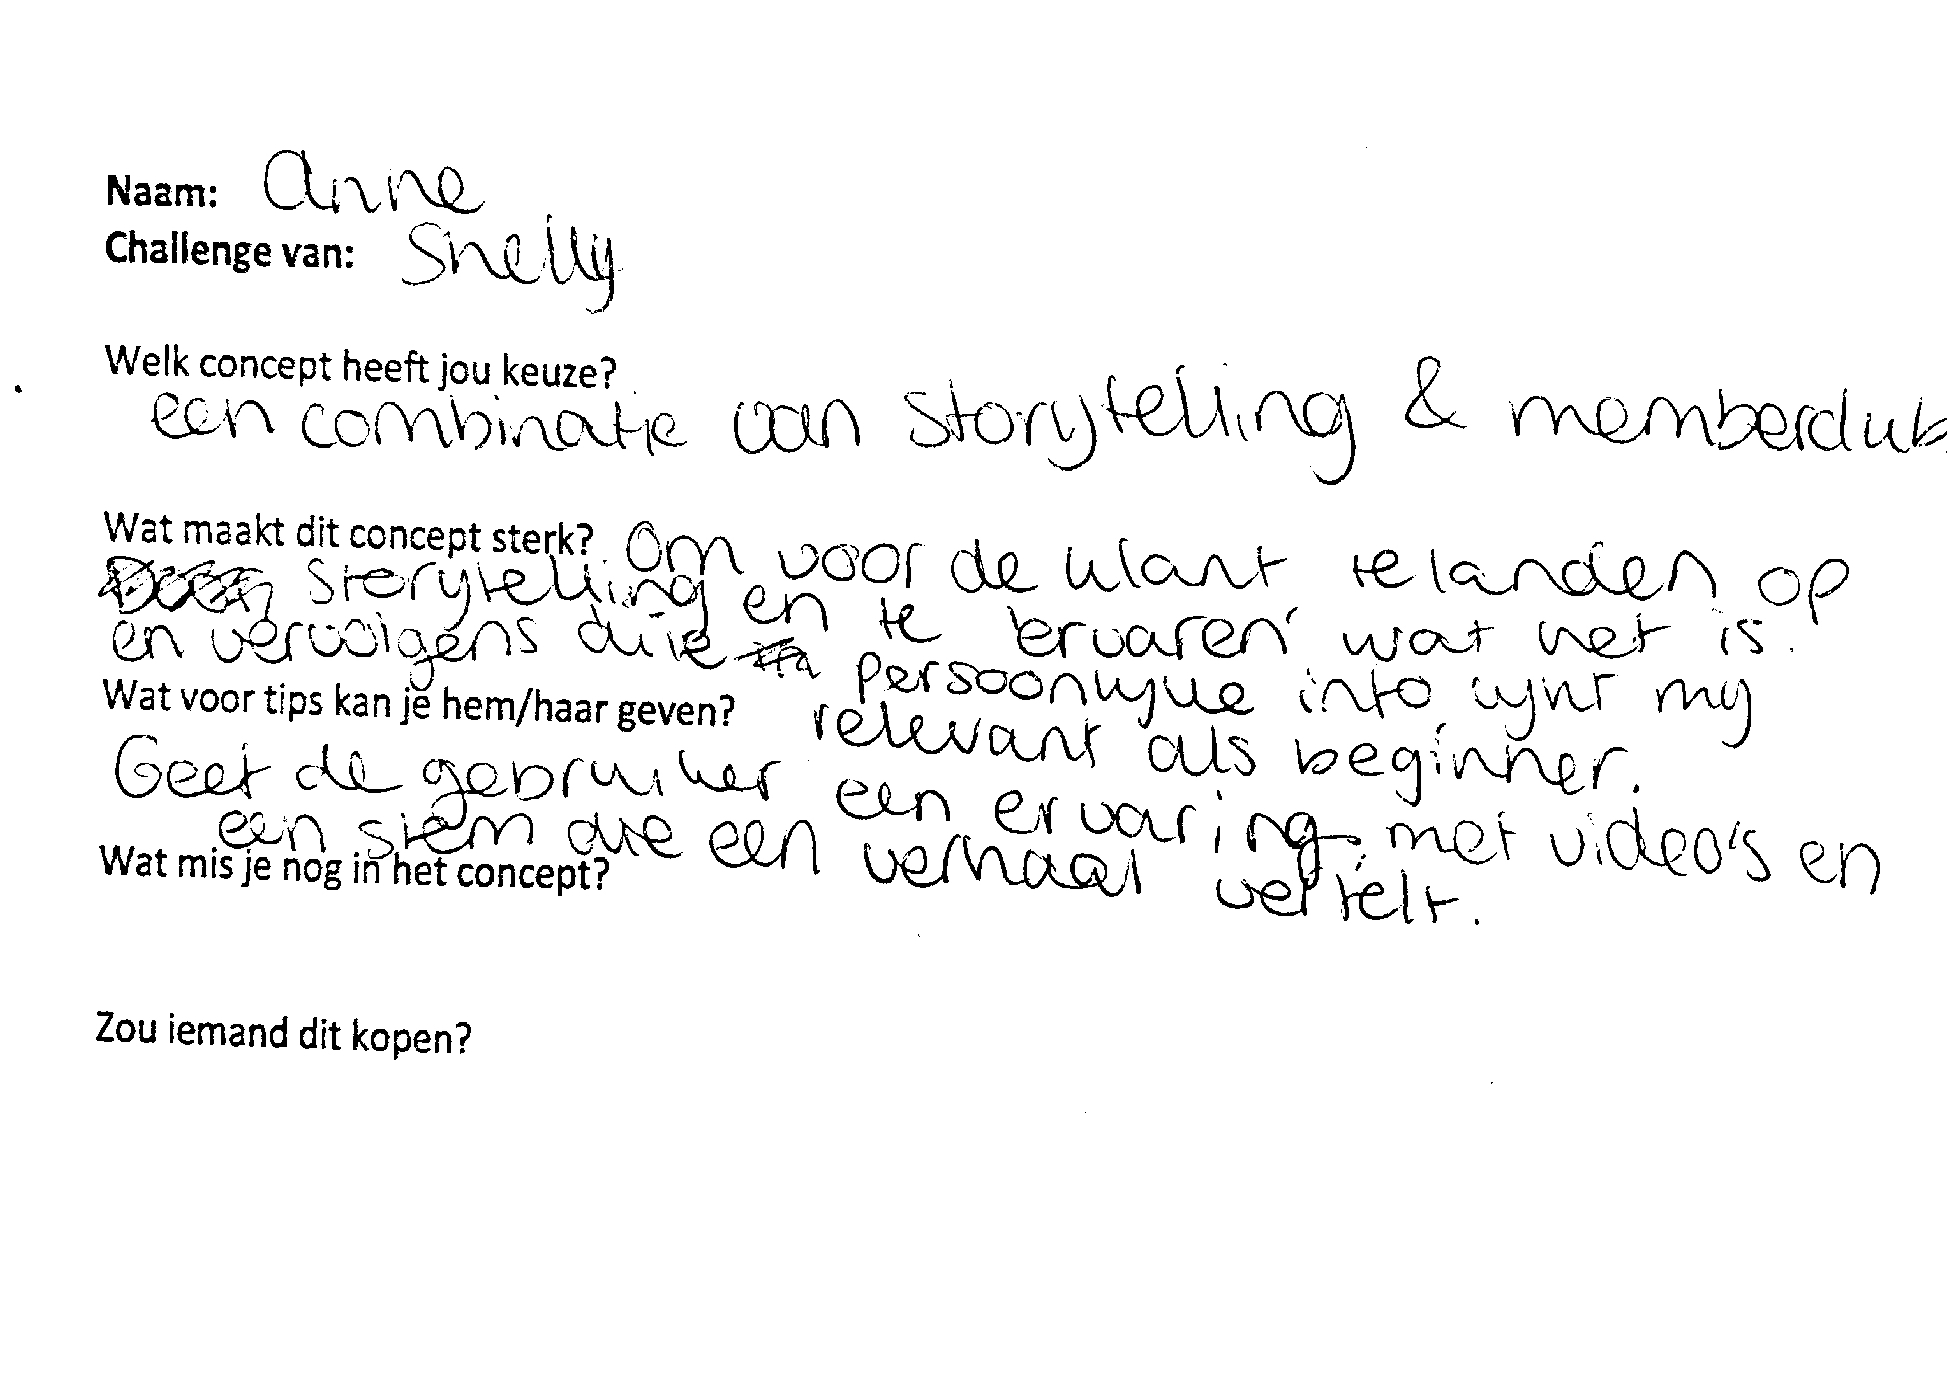 Naam: Anne
Challenge van: Shelly
Welk concept heeft jou keuze?
een combinatie van storytelling & memberclub
Wat maakt dit concept sterk? Om voor de klant te landen op
storytelling en te 'ervaren' wat het is.
en vervolgens die persoonlijke info lijkt mij
relevant als beginner.
Wat voor tips kan je hem/haar geven?
Geef de gebruiker een ervaring, met video's en
een stem die een verhaal vertelt.
Wat mis je nog in het concept?
Zou iemand dit kopen?